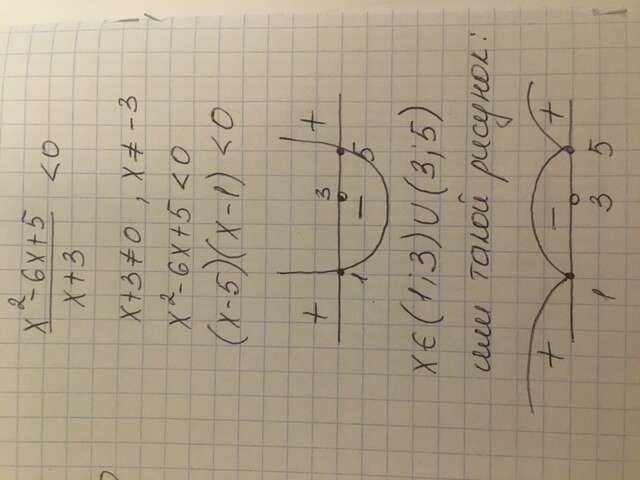 x²-6x+5 <0
x+3
x+3≠0, x≠-3
x²-6x+5<0
(x-5)(x-1)<0
+ 1 3 - 5 +
x∈(1;3)∪(3;5)
или такой рисунок:
+ - +
1 3 5